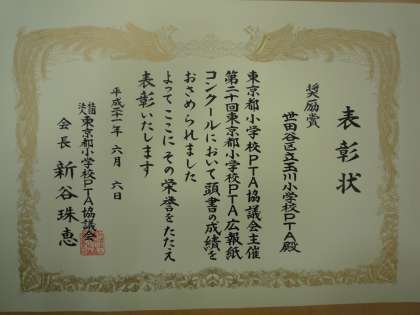 表彰状
奨励賞
世田谷区立玉川小学校PTA殿
東京都小学校PTA協議会主催
第二十回東京都小学校PTA広報紙
コンクールにおいて頭書の成績を
おさめられました
よってここにその栄誉をたたえ
表彰いたします
平成二十一年 六月 六日
社団法人 東京都小学校PTA協議会
会長 新谷珠恵